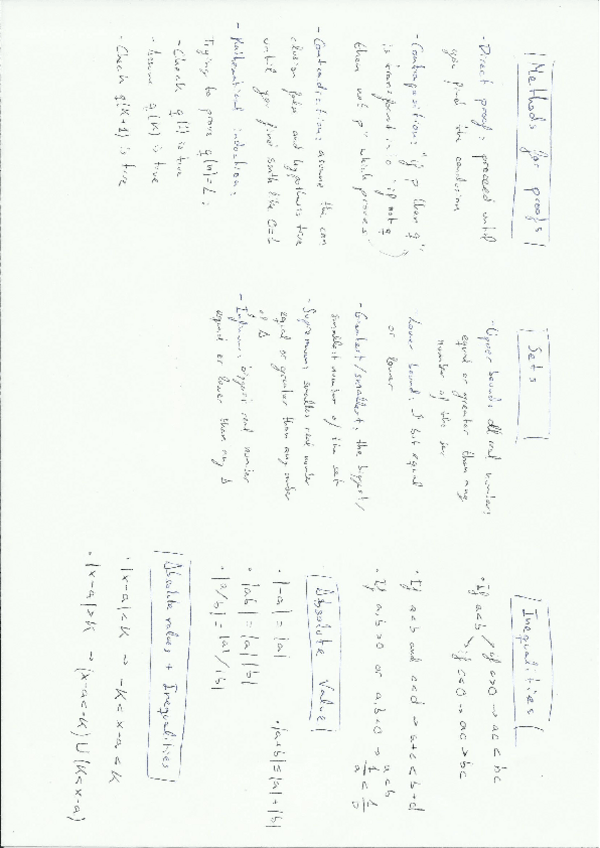 Methods for proofs
- Direct proof: proceed until
you find the conclusion
- Contraposition: "if p then q"
is transformed in "if not q
then not p" which proves
- Contradiction: assume the con
clusion false and hypothesis true
until you find smth like 0=1
- Mathematical induction:
Trying to prove q(n)=L:
- Check q(1) is true
- Assume q(k) is true
- Check q(k+1) is true
Sets
- Upper bound: all real numbers
equal or greater than any
number of the set
Lower bound: " but equal
or lower
- Greatest/smallest: the biggest/
smallest number of the set
- Supremum: smallest real number
equal or greater than any number
of B
- Infimum: biggest real number
equal or lower than any B
Inequalities
• If a<b if c>0 → ac < bc
if c<0 → ac > bc
• If a<b and c<d → a+c < b+d
• If a,b>0 or a,b<0 → a<b
Absolute Value
• |-a| = |a|
• |a+b| ≤ |a| + |b|
• |ab| = |a| |b|
• |a/b| = |a|/|b|
Absolute values + Inequalities
• |x-a|<K → -K<x-a<K
• |x-a|>K → (x-a<-K) U (K<x-a)